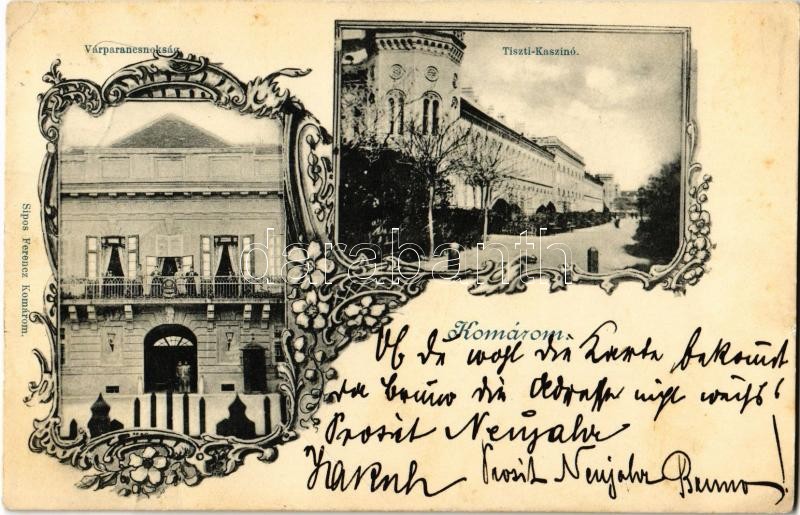 Várparancsnokság.
Tiszti-Kaszinó.
Sipos Ferencz Komárom.
darabanth
Komárom.
Ob du wohl die Karte bekomst
da Bruno die Adresse nicht weiß!
Prosit Neujahr
Prosit Neujahr Bruno!